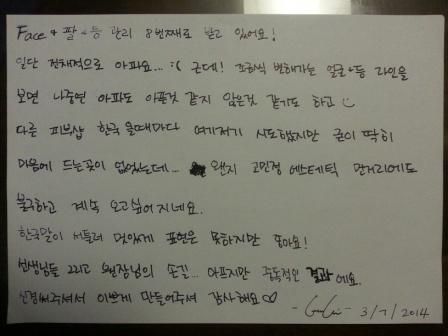 Face + 팔 + 등 관리 8번째로 받고 있어요!
일단 전체적으로 아파요... :( 근데! 조금씩 변해가는 얼굴+등 라인을
보면 나중엔 아파도 아픈것 같지 않은것 같기도 하고
다른 피부샵 한국 올때마다 여기저기 시도했지만 굳이 딱히
마음에 드는곳이 없었는데... 왠지 고민정 에스테틱 먼거리에도
불구하고 계속 오고싶어 지네요.
한국말이 서툴러 멋있게 표현은 못하지만 좋아요!
선생님들 그리고 원장님의 손길... 아프지만 중독적인 결과에요.
신경써주셔서 이쁘게 만들어주셔 감사해요♡
3/7/2014